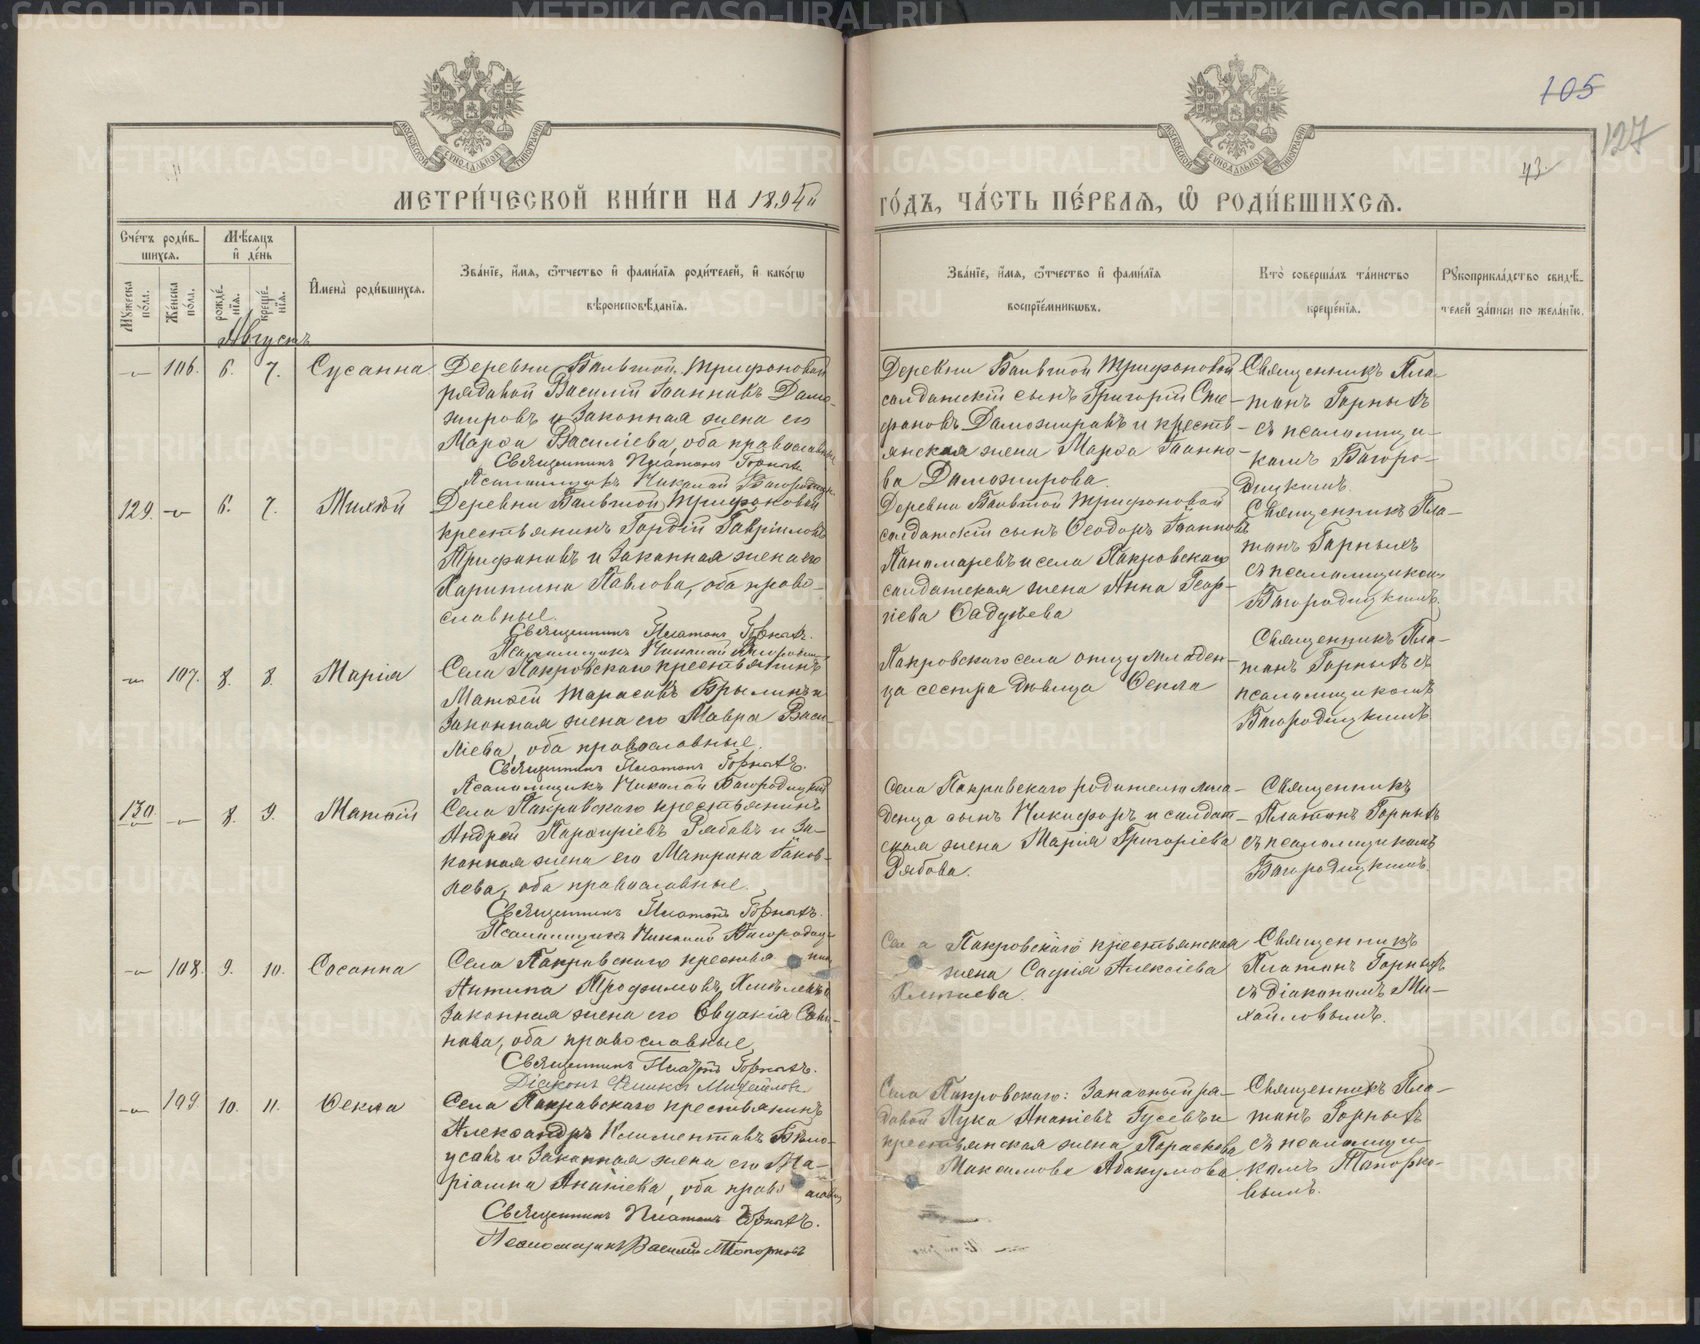 105
127
43
МЕТРИ́ЧЕСКОЙ КНИ́ГИ НА 1894й
ГО́ДЪ, ЧА́СТЬ ПЕ́РВАЯ, Ѡ҆ РОДИ́ВШИХСЯ.
Сче́тъ роди́в-
шихся.
Мѣ́сяцъ
и҆ де́нь
И҆мена̀ роди́вшихся.
Зва́нїе, и҆́мя, ѻ҆́тчество и҆ фами́лїя роди́телей, и҆ како́гѡ
вѣроисповѣ́данїя.
Му́жеска по́ла.
Же́нска по́ла.
рожде́нїя.
креще́нїя.
Зва́нїе, и҆́мя, ѻ҆́тчество и҆ фами́лїя
воспрїе́мниковъ.
Кто̀ соверша́лъ та́инство
креще́нїя.
Рꙋкоприкла́дство свидѣ́-
телей за́писи по жела́нїю.
Августъ
106. 6. 7. Сусанна
Деревни Большой Трифоновой
рядовой Василій Іоанновъ Домо-
жировъ и законная жена его
Марѳа Василіева, оба православные
Священникъ Платонъ Горныхъ
Псаломщикъ Николай Богородицкій
Деревни Большой Трифоновой
солдатскій сынъ Григорій Сте-
фановъ Доможировъ и кресть-
янская жена Марѳа Іоанно-
ва Доможирова.
Священникъ Пла-
тонъ Горныхъ
съ псаломщи-
комъ Богоро-
дицкимъ.
129. 6. 7. Михѣй
Деревни Большой Трифоновой
крестьянинъ Гордій Гавріиловъ
Трифоновъ и законная жена его
Харитина Павлова, оба право-
славные.
Священникъ Платонъ Горныхъ.
Псаломщикъ Николай Богородицкій
Деревни Большой Трифоновой
солдатскій сынъ Ѳеодоръ Іоанновъ
Пономаревъ и села Покровскаго
солдатская жена Анна Геор-
гіева
Священникъ Пла-
тонъ Горныхъ
съ псаломщикомъ
Богородицкимъ.
107. 8. 8. Марія
Села Покровскаго крестьянинъ
Матѳей Тарасовъ Брылинъ и
законная жена его Мавра Васи-
ліева, оба православные.
Священникъ Платонъ Горныхъ.
Псаломщикъ Николай Богородицкій
Покровскаго села отцу младен-
ца сестра дѣвица Ѳекла
Священникъ Пла-
тонъ Горныхъ съ
псаломщикомъ
Богородицкимъ
130. 8. 9. Матѳей
Села Покровскаго крестьянинъ
Андрей Порфиріевъ Рябовъ и за-
конная жена его Матрона Іаков-
лева, оба православные.
Священникъ Платонъ Горныхъ.
Псаломщикъ Николай Богородицкій
Села Покровскаго родителю мла-
денца сынъ Никифоръ и солдат-
ская жена Марія Григоріева
Рябова.
Священникъ
Платонъ Горныхъ
съ псаломщикомъ
Богородицкимъ.
108. 9. 10. Сосанна
Села Покровскаго крестья нинъ
Антипа Трофимовъ
законная жена его Евдокія
нова, оба православные
Священникъ Платонъ Горныхъ.
Діаконъ Михайловъ
Села Покровскаго крестьянская
жена Софія Алексіева
Священникъ
Платонъ Горныхъ
съ діакономъ Ми-
хайловымъ.
109. 10. 11. Ѳекла
Села Покровскаго крестьянинъ
Александръ Климентовъ Бѣло-
усовъ и законная жена его Ма-
ріамна Ананіева, оба право славн
Священникъ Платонъ Горныхъ.
Псаломщикъ Василій Топорковъ
Села Покровскаго: Запасный ря-
довой Лука Ананіевъ Гусевъ и
крестьянская жена Параскева
Максимова Абакумова
Священникъ Пла-
тонъ Горныхъ
съ псаломщи-
комъ Топорко-
вымъ.